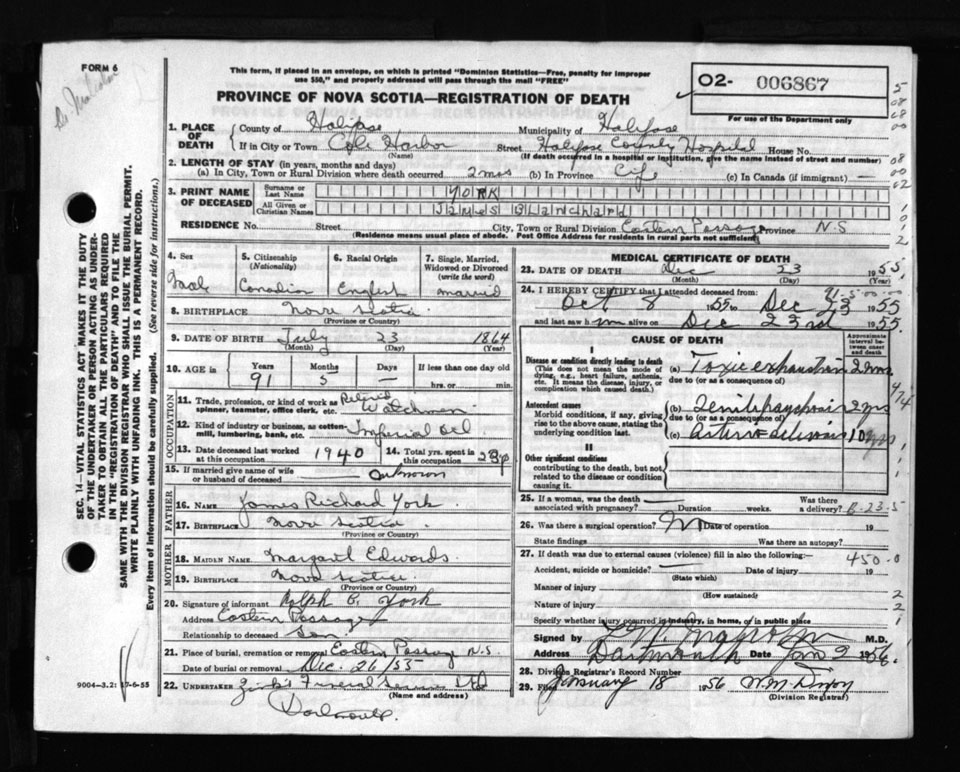 FORM 6
This form, if placed in an envelope, on which is printed "Dominion Statistics—Free, penalty for improper
use $50," and properly addressed will pass through the mail "FREE"
O2- 006867
For use of the Department only
PROVINCE OF NOVA SCOTIA—REGISTRATION OF DEATH
SEC. 14—VITAL STATISTICS ACT MAKES IT THE DUTY
OF THE UNDERTAKER OR PERSON ACTING AS UNDER-
TAKER TO OBTAIN ALL THE PARTICULARS REQUIRED
IN THE "REGISTRATION OF DEATH" AND TO FILE THE
SAME WITH THE DIVISION REGISTRAR WHO SHALL ISSUE THE BURIAL PERMIT.
WRITE PLAINLY WITH UNFADING INK. THIS IS A PERMANENT RECORD.
Every item of information should be carefully supplied. (See reverse side for instructions.)
1. PLACE OF DEATH County of Halifax Municipality of Halifax
If in City or Town Cole Harbor Street Halifax County Hospital House No.
(Name) (If death occurred in a hospital or institution, give the name instead of street and number)
2. LENGTH OF STAY (in years, months and days)
(a) In City, Town or Rural Division where death occurred 2 mos (b) In Province Life (c) In Canada (if immigrant) —
3. PRINT NAME OF DECEASED Surname or Last Name YORK
All Given or Christian Names James Blanchard
RESIDENCE No. Street City, Town or Rural Division Eastern Passage Province N.S
(Residence means usual place of abode. Post Office Address for residents in rural parts not sufficient)
4. Sex 5. Citizenship (Nationality) 6. Racial Origin 7. Single, Married, Widowed or Divorced (write the word)
Male Canadian English married
8. BIRTHPLACE Nova Scotia
(Province or Country)
9. DATE OF BIRTH July 23 1864
(Month) (Day) (Year)
10. AGE in Years Months Days If less than one day old
91 5 — hrs. or min.
OCCUPATION
11. Trade, profession, or kind of work as spinner, teamster, office clerk, etc. Retired Watchman
12. Kind of industry or business, as cotton-mill, lumbering, bank, etc. Imperial Oil
13. Date deceased last worked at this occupation 1940 14. Total yrs. spent in this occupation 23
15. If married give name of wife or husband of deceased unknown
FATHER
16. NAME James Richard York
17. BIRTHPLACE Nova Scotia
(Province or Country)
MOTHER
18. MAIDEN NAME Margaret Edwards
19. BIRTHPLACE Nova Scotia
(Province or Country)
20. Signature of informant Ralph B. York
Address Eastern Passage
Relationship to deceased Son
21. Place of burial, cremation or removal Eastern Passage N.S.
Date of burial or removal Dec. 26/55
22. UNDERTAKER Zink's Funeral Service Ltd
(Name and address)
Dartmouth
9004-3.2: 17-6-55
MEDICAL CERTIFICATE OF DEATH
23. DATE OF DEATH Dec 23 1955
(Month) (Day)
24. I HEREBY CERTIFY that I attended deceased from:
Oct 8 1955 Dec 23 1955
and last saw him alive on Dec 23rd 1955
CAUSE OF DEATH
Approximate interval between onset and death
I
Disease or condition directly leading to death
(This does not mean the mode of dying, e.g., heart failure, asthenia, etc. It means the disease, injury, or complication which caused death.)
(a) Toxic exhaustion
due to (or as a consequence of)
Antecedent causes
Morbid conditions, if any, giving rise to the above cause, stating the underlying condition last.
(b) Senile psychosis 2 yrs
due to (or as a consequence of)
(c) Arteriosclerosis 10 yrs
II
Other significant conditions
contributing to the death, but not related to the disease or condition causing it.
25. If a woman, was the death associated with pregnancy? Duration weeks. Was there a delivery?
26. Was there a surgical operation? No Date of operation 19
State findings Was there an autopsy?
27. If death was due to external causes (violence) fill in also the following:—
Accident, suicide or homicide? — Date of injury 19
(State which)
Manner of injury
(How sustained)
Nature of injury
Specify whether injury occurred in industry, in home, or in public place
Signed by M.D.
Address Dartmouth Date Jan 9 1956
28. Division Registrar's Record Number
29. Filed January 18 1956 Wm. Dixon
(Division Registrar)